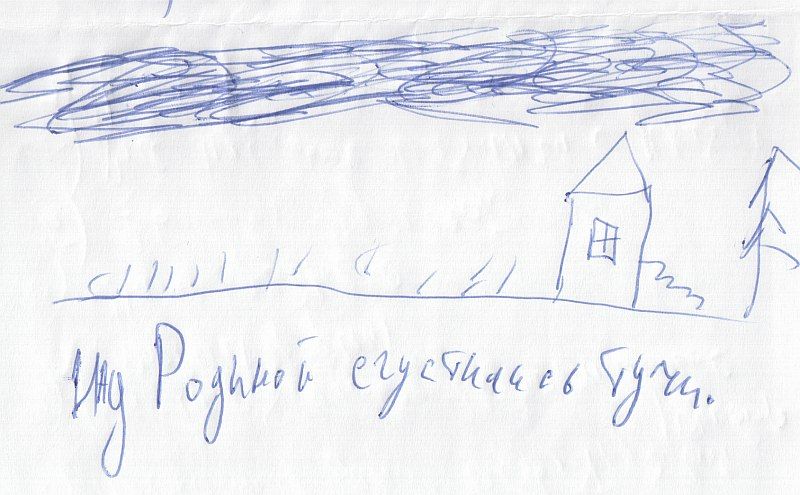 над Родиной сгустились тучи.